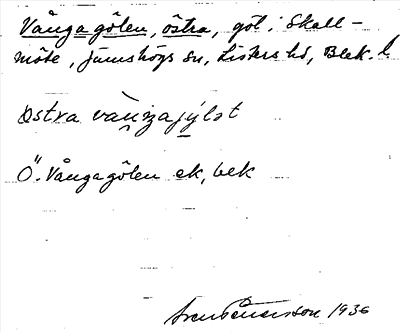 Vångagölen, östra, göl i Skall-
möte, Jämshögs sn, Listers hd, Blek. l
östra
Ö. Vångagölen ek, bek
1936